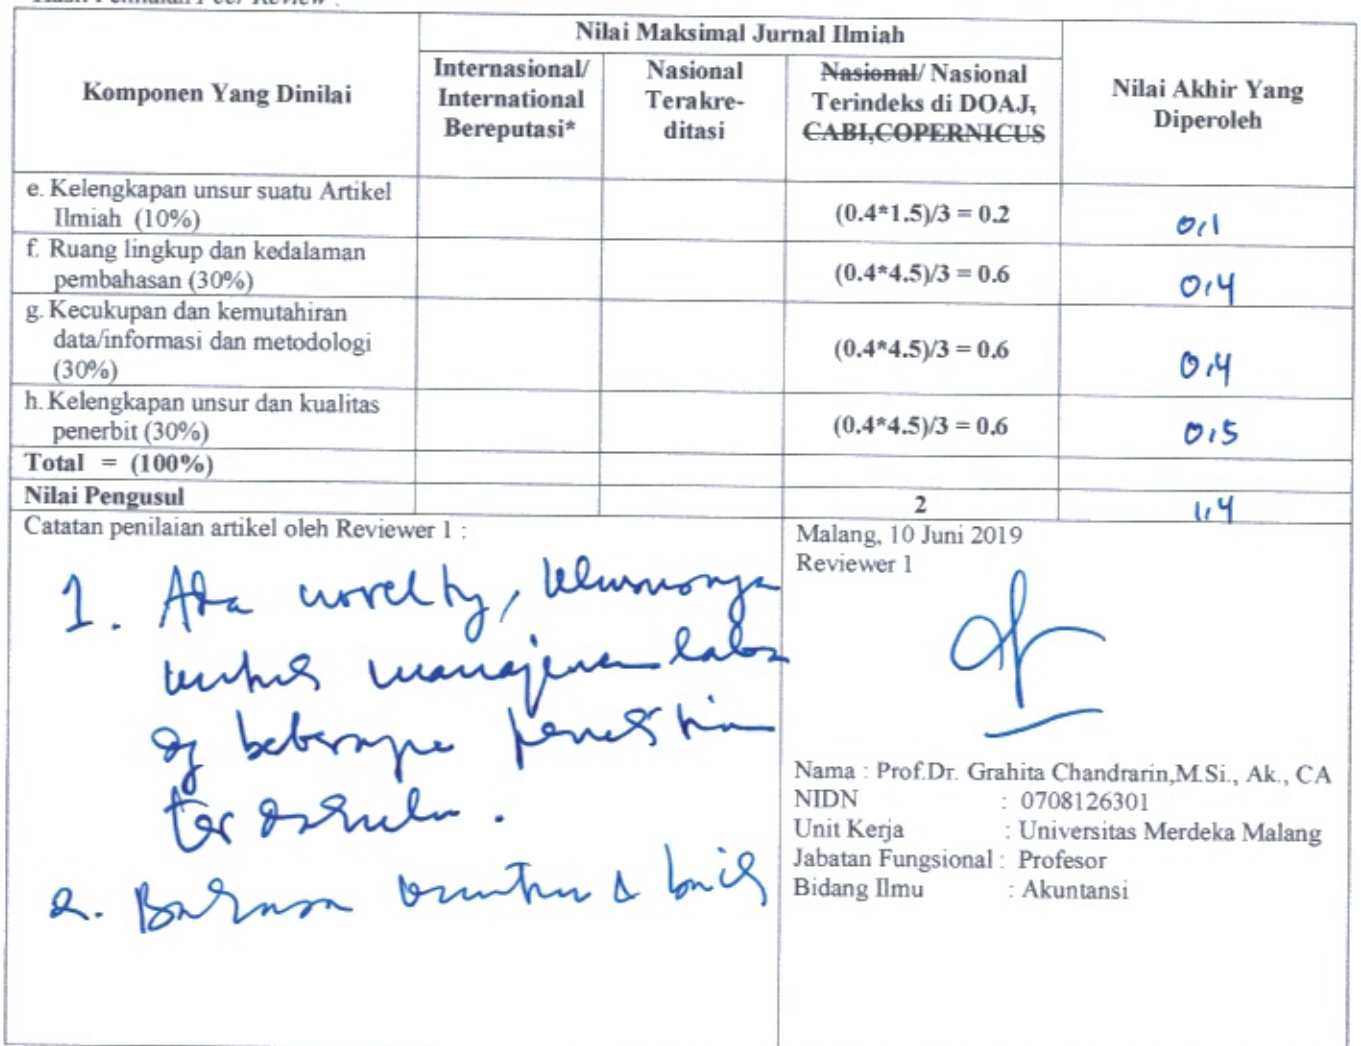 Nilai Maksimal Jurnal Ilmiah
Komponen Yang Dinilai
Internasional/
International
Bereputasi*
Nasional
Terakre-
ditasi
Nasional/ Nasional
Terindeks di DOAJ,
CABI,COPERNICUS
Nilai Akhir Yang
Diperoleh
e. Kelengkapan unsur suatu Artikel
Ilmiah (10%)
(0.4*1.5)/3 = 0.2
0,1
f. Ruang lingkup dan kedalaman
pembahasan (30%)
(0.4*4.5)/3 = 0.6
0,4
g. Kecukupan dan kemutahiran
data/informasi dan metodologi
(30%)
(0.4*4.5)/3 = 0.6
0,4
h. Kelengkapan unsur dan kualitas
penerbit (30%)
(0.4*4.5)/3 = 0.6
0,5
Total = (100%)
Nilai Pengusul
2
1,4
Catatan penilaian artikel oleh Reviewer 1 :
1. Ada novelty, khususnya
untuk manajemen laba
dg beberapa penelitian
terdahulu.
2. Bahasa & baik
Malang, 10 Juni 2019
Reviewer 1
Nama : Prof.Dr. Grahita Chandrarin,M.Si., Ak., CA
NIDN : 0708126301
Unit Kerja : Universitas Merdeka Malang
Jabatan Fungsional : Profesor
Bidang Ilmu : Akuntansi